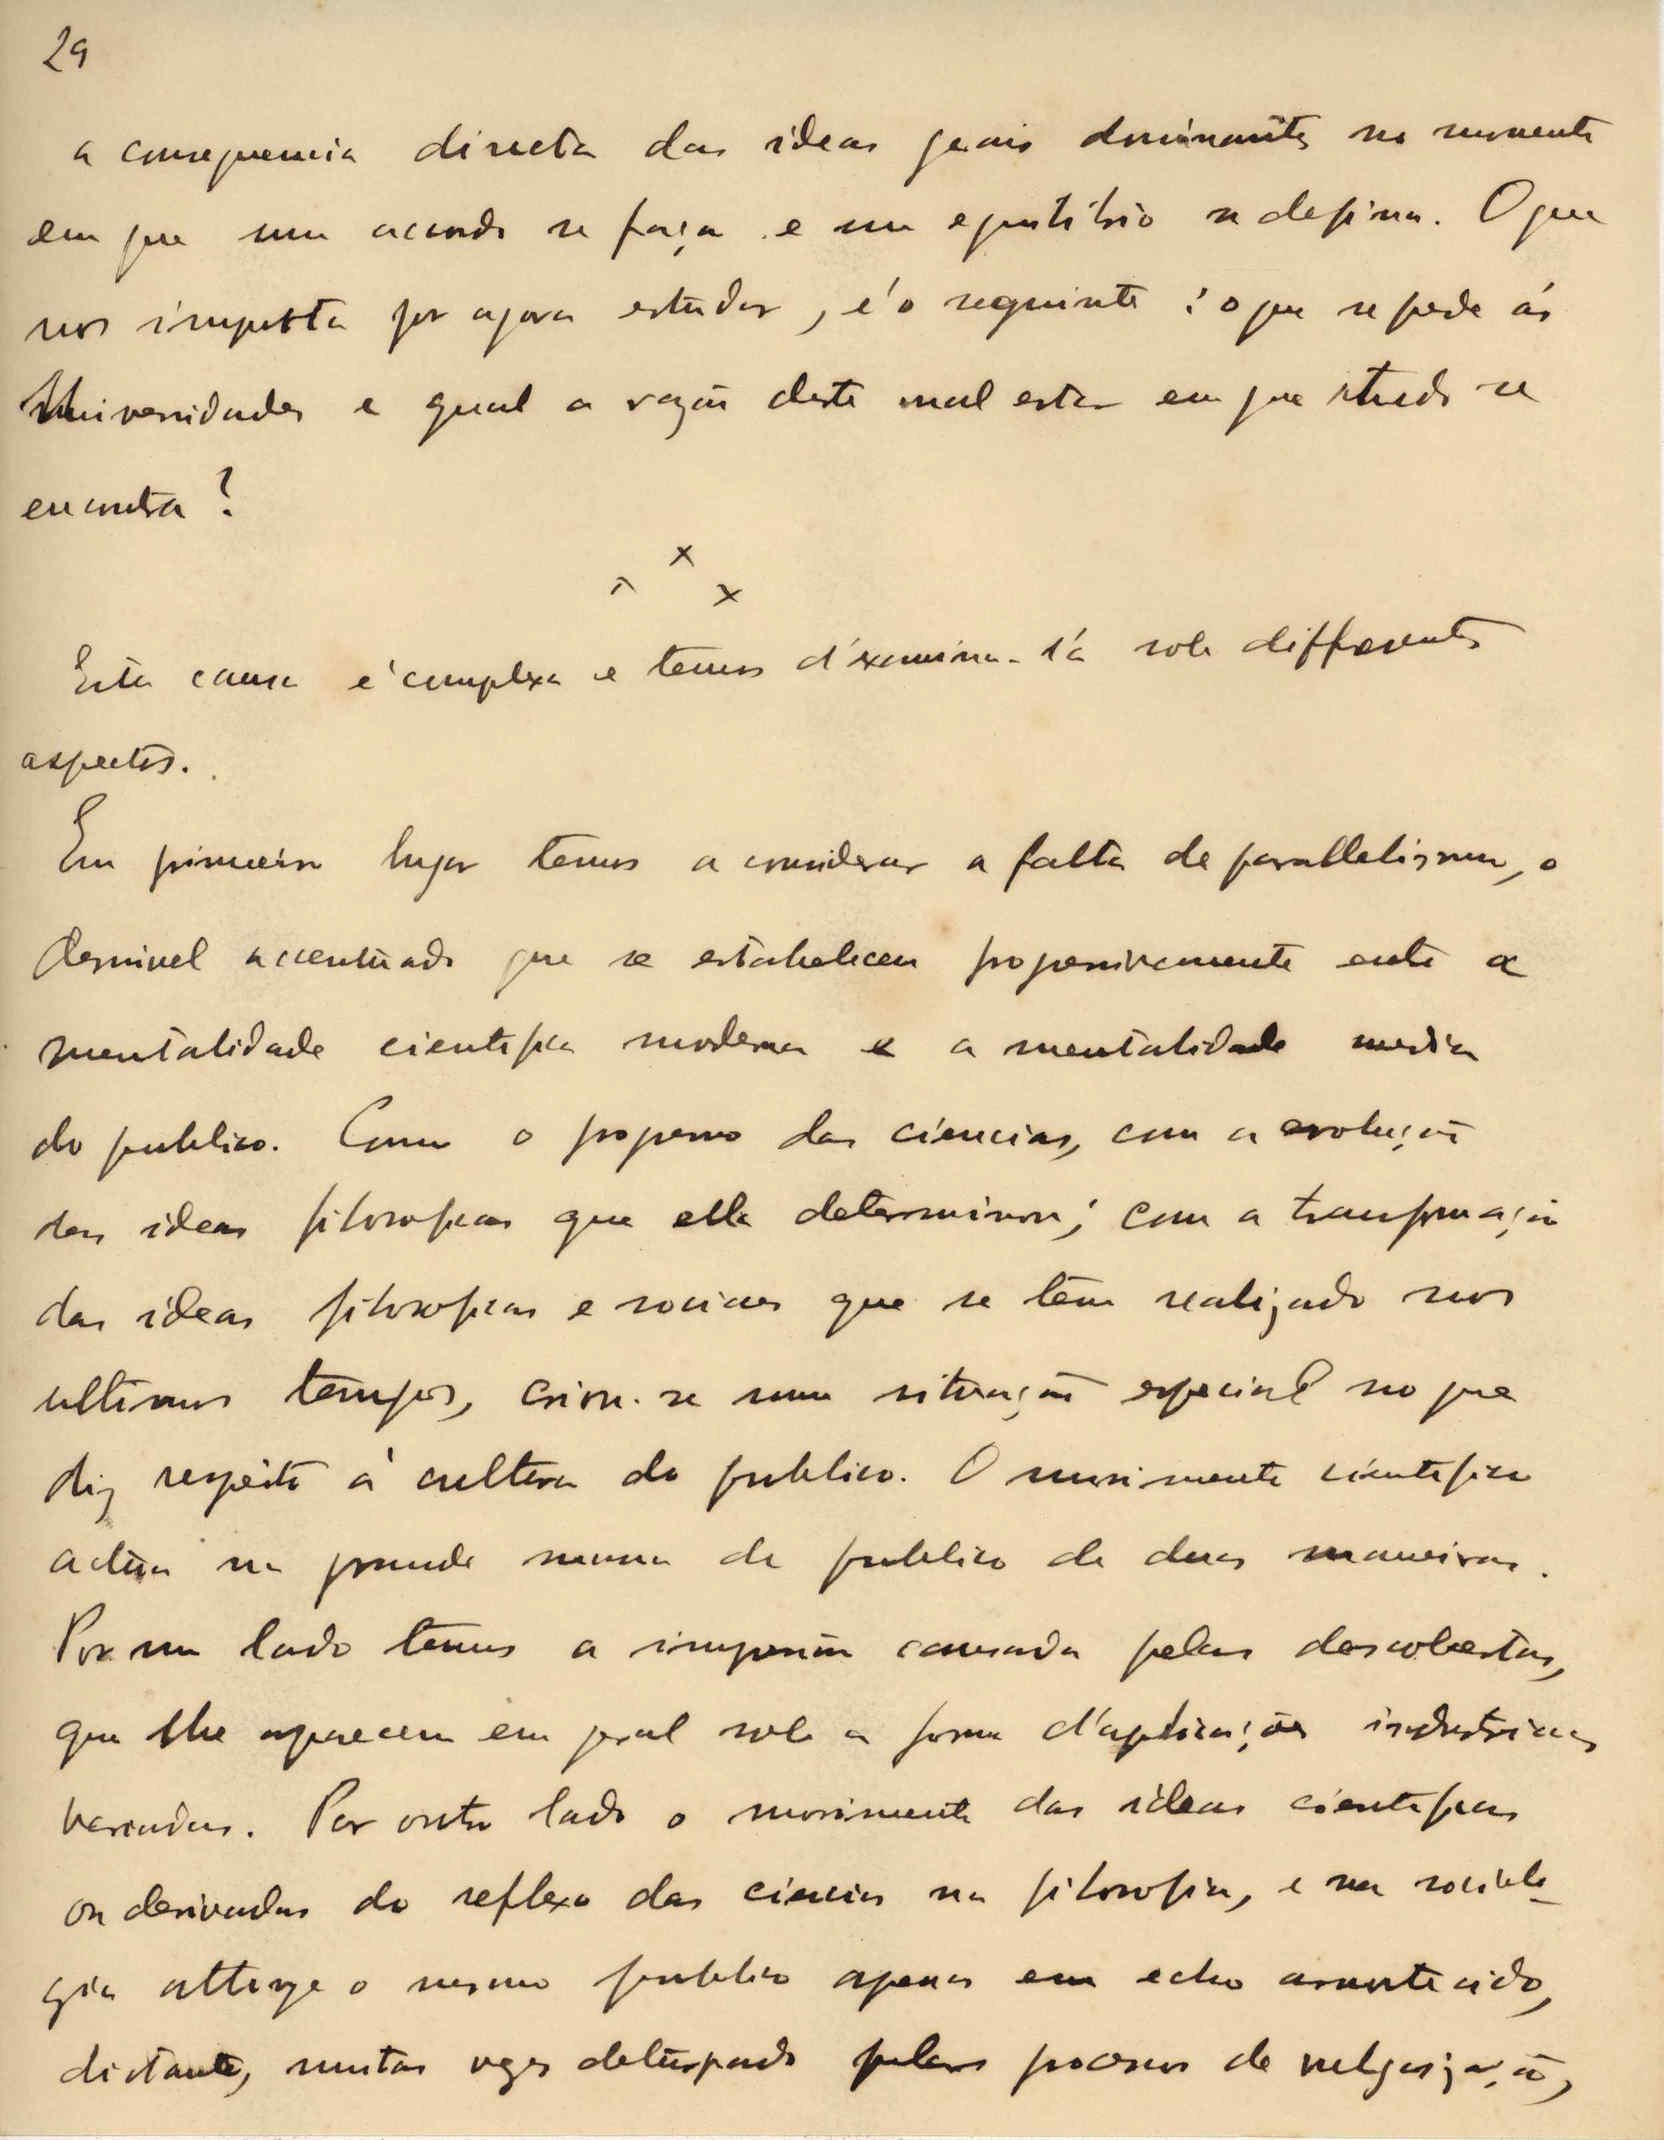 29
a consequencia directa das ideas geraes dominantes no momento
em que um accordo se faça e um equilibrio se defina. O que
nos importa por agora estudar, é o seguinte: o que se pede ás
Universidades e qual a razão deste mal estar em que tudo se
encontra?
x
x x
Esta causa é complexa e temos d'examina-la sob differentes
aspectos.
Em primeiro lugar temos a considerar a falta de parallelismo, o
desnivel accentuado que se estabeleceu progressivamente entre a
mentalidade cientifica moderna e a mentalidade media
do publico. Com o progresso das ciencias, com a evolução
das ideas filosoficas que ella determinou; com a transformação
das ideas filosoficas e sociaes que se tem realizado nos
ultimos tempos, criou-se uma situação especial no que
diz respeito á cultura do publico. O movimento cientifico
actua na grande massa do publico de duas maneiras.
Por um lado temos a impressão causada pelas descobertas,
que lhe aparecem em geral sob a forma d'aplicações industriaes
variadas. Por outro lado o movimento das ideas cientificas
ou derivadas do reflexo das ciencias na filosofia, e na sociolo-
gia attinge o mesmo publico apenas em echo amortecido,
distante, muitas vezes deturpado pelos processos de vulgarização,